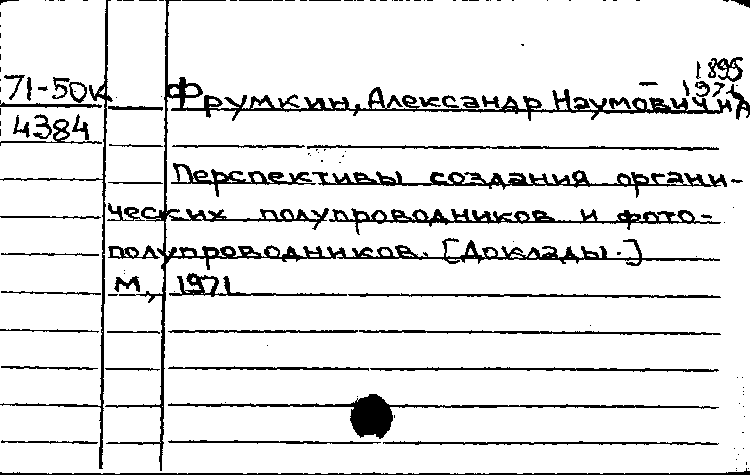 1895
71-50к Фрумкин, Александр Наумович и др
– 1976
4384
Перспективы создания органи-
ческих полупроводников и фото-
полупроводников. [Доклады.]
М., 1971